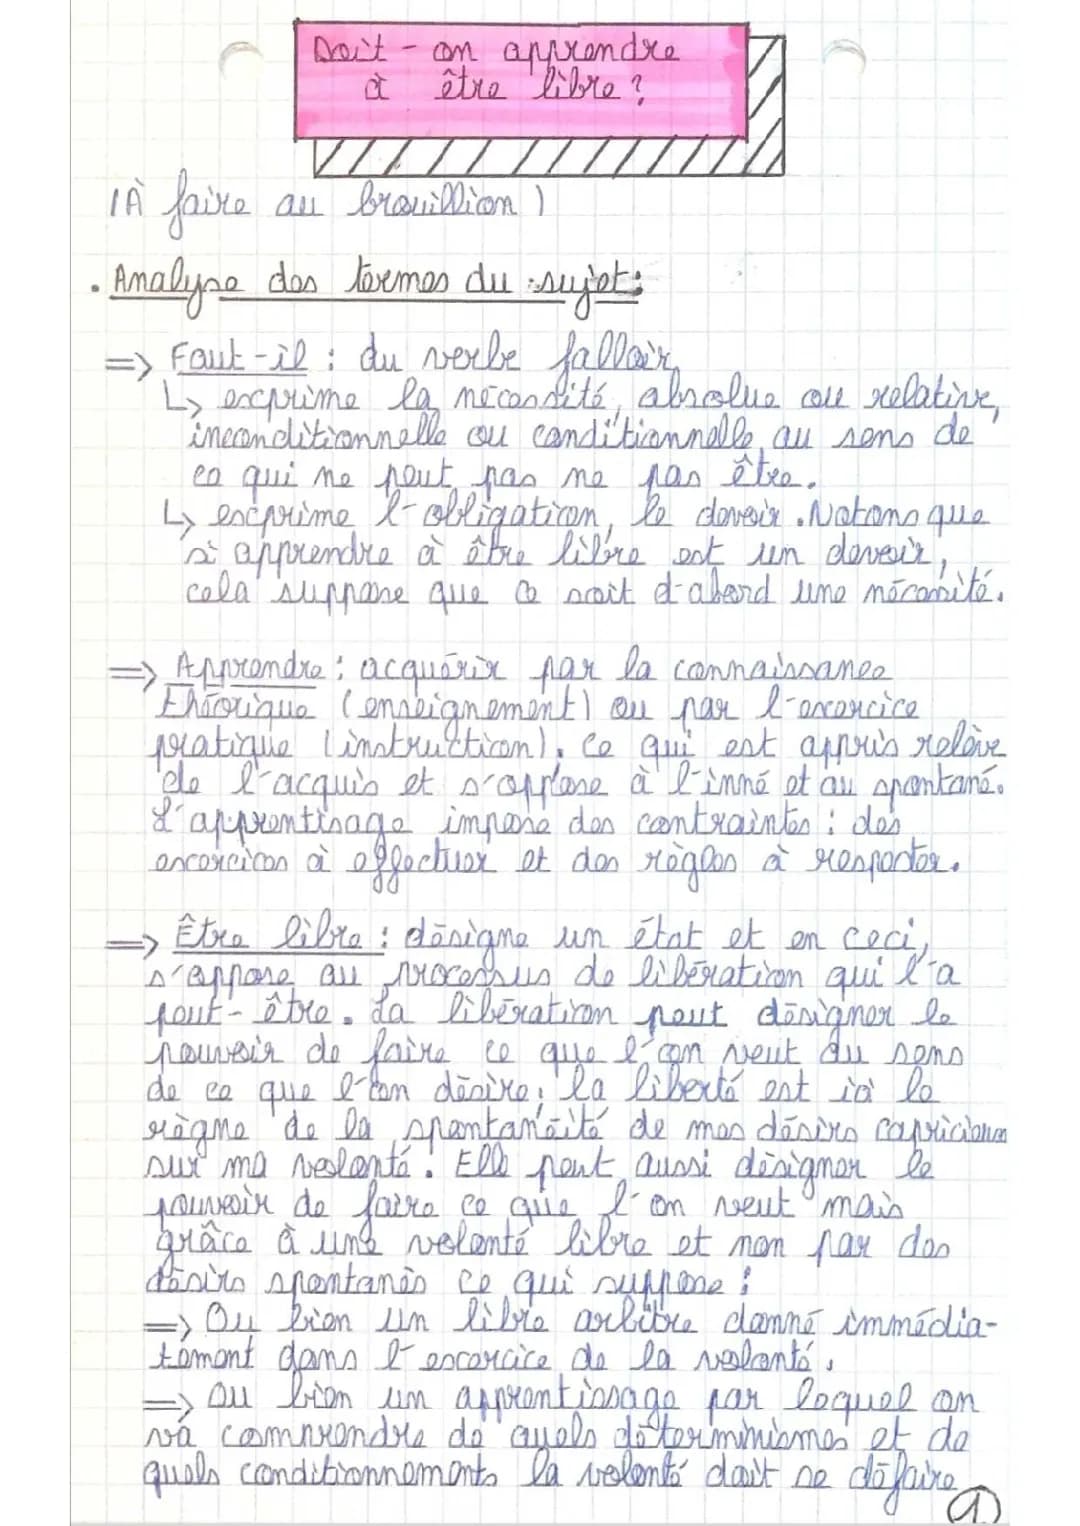 Doit-on apprendre
à être libre ?
(À faire au brouillion)
. Analyse des termes du sujet :
=> Faut-il : du verbe falloir,
↳ exprime la nécessité, absolue ou relative,
inconditionnelle ou conditionnelle, au sens de
ce qui ne peut pas ne pas être.
↳ exprime l'obligation, le devoir. Notons que
si apprendre à être libre est un devoir,
cela suppose que ce soit d'abord une nécessité.
=> Apprendre : acquérir par la connaissance
théorique (enseignement) ou par l'exercice
pratique (instruction). Ce qui est appris relève
de l'acquis et s'oppose à l'inné et au spontané.
L'apprentisage impose des contraintes : des
exercices à effectuer et des règles à respecter.
=> Être libre : désigne un état et en ceci,
s'oppose au processus de libération qui l'a
peut-être. La libération peut désigner le
pouvoir de faire ce que l'on veut du sens
de ce que l'on désire, la liberté est ici le
règne de la spontanéité de mes désirs capricieux
sur ma volonté. Elle peut aussi désigner le
pouvoir de faire ce que l'on veut mais
grâce à une volonté libre et non par des
désirs spontanés ce qui suppose :
=> Ou bien un libre arbitre donné immédia-
tement dans l'exercice de la volonté,
=> Ou bien un apprentissage par lequel on
va comprendre de quels déterminismes et de
quels conditionnements la volonté doit se défaire
1